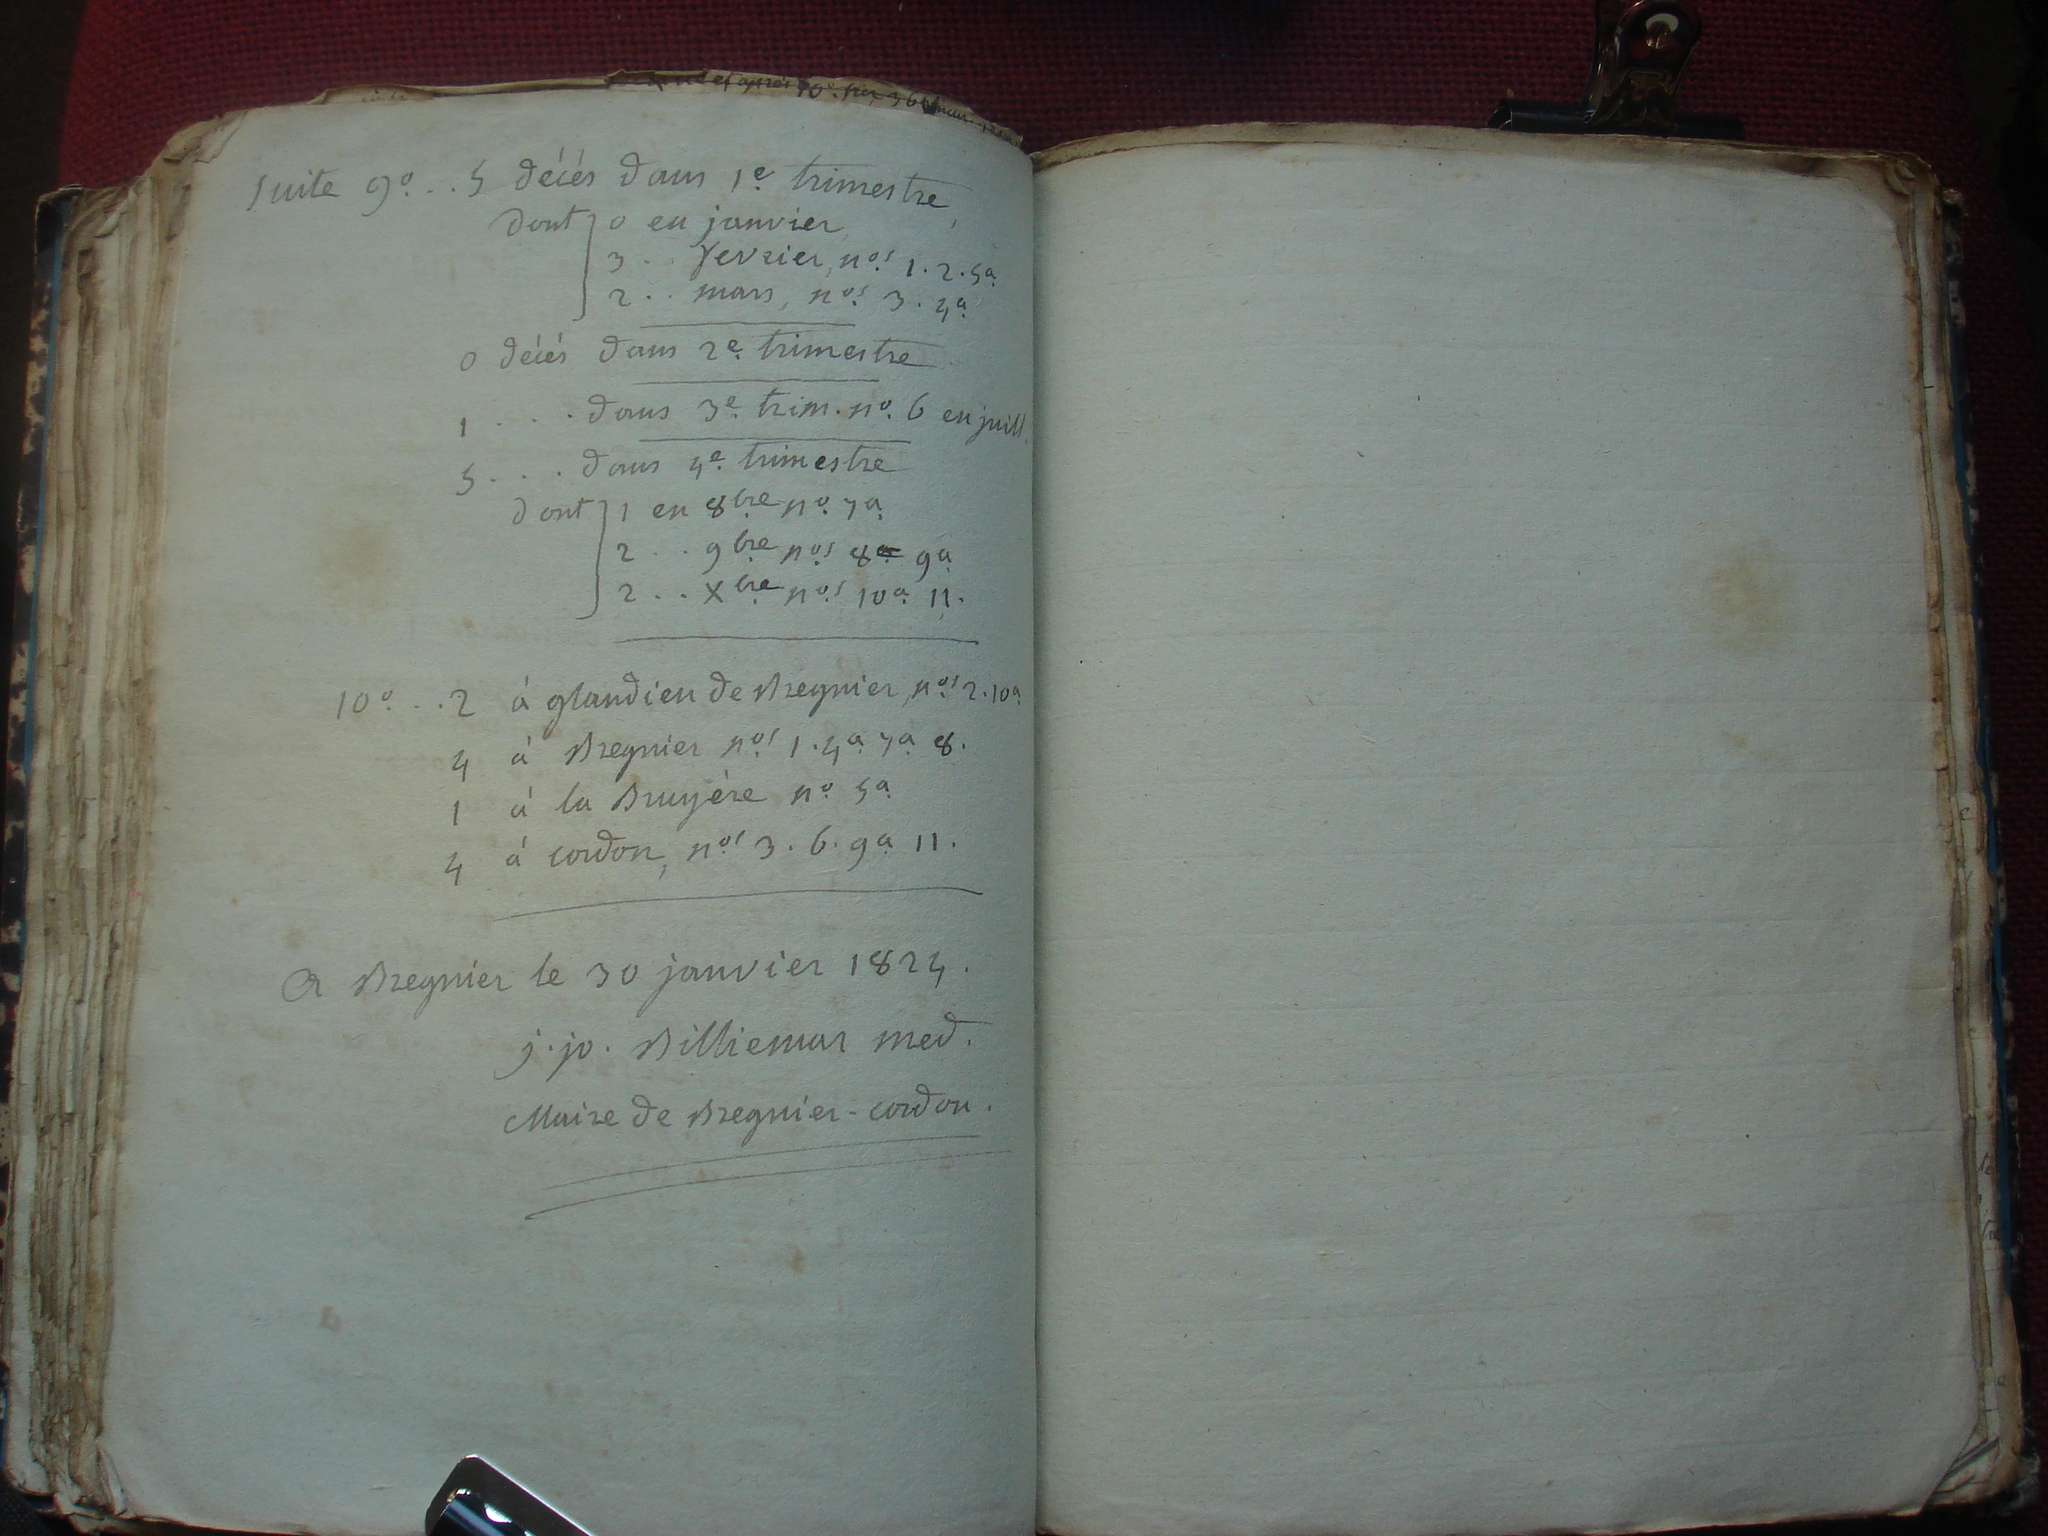 et après 10°.
Suite 9º . . 5 décés dans 1e trimestre,
dont 0 en janvier,
3 . . fevrier, nos 1 . 2 . 5a
2 . . mars, nos 3 . 4a
0 décés dans 2e trimestre
1 . . . dans 3e trim. no. 6 en juill.
5 . . . dans 4e trimestre
dont 1 en 8bre no 7a
2 . . 9bre nos 8 9a
2 . . Xbre nos 10a 11.
10º . . 2 á glandieu de Bregnier, nos 2 . 10a
4 á Bregnier nos 1 . 4a 7a 8.
1 á la Bruyére no 5a
4 á cordon, nos 3 . 6 . 9a 11.
A Bregnier le 30 janvier 1824.
j. jo. Billiemas med.
Maire de Bregnier-cordon.